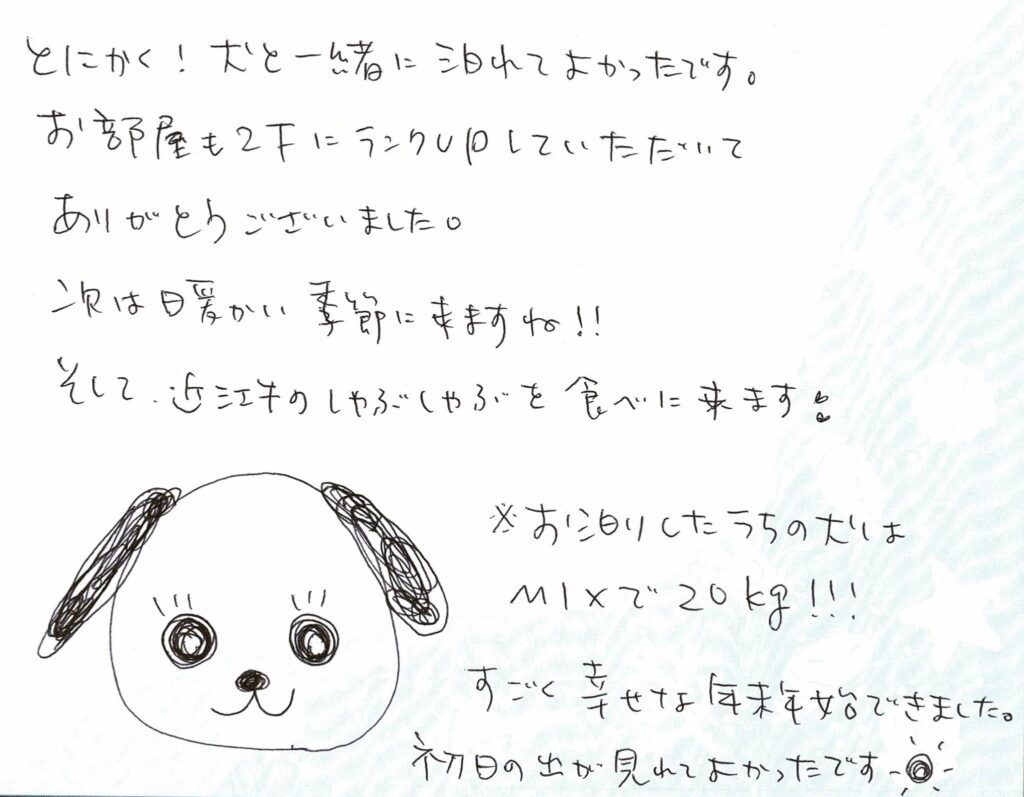 とにかく！犬と一緒に泊れてよかったです。
お部屋も2Fにランクupしていただいて
ありがとうございました。
次は暖かい季節に来ますね!!
そして、近江牛のしゃぶしゃぶを食べに来ます
※お泊りしたうちの犬は
MIXで20kg!!!
すごく幸せな年末年始できました。
初日の出が見れてよかったです